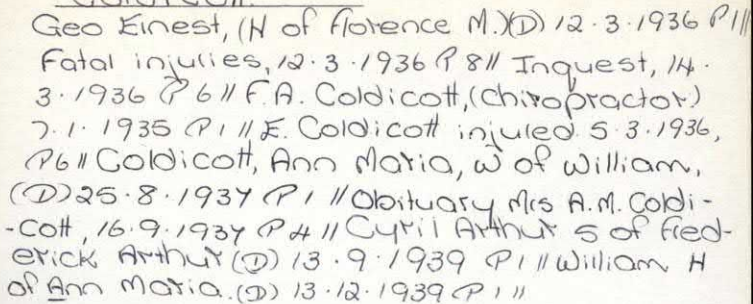 Geo Ernest, (H of Florence M.)(D) 12.3.1936 P1//
Fatal injuries, 12.3.1936 P8// Inquest, 14.
3.1936 P6// F.A. Coldicott, (Chiropractor)
7.1.1935 P1// E. Coldicott injured 5.3.1936,
P6// Coldicott, Ann Maria, W of William,
(D) 25.8.1937 P1// Obituary Mrs A.M. Coldi-
-cott, 16.9.1937 P4// Cyril Arthur S of Fred-
erick Arthur (D) 13.9.1939 P1// William H
of Ann Maria. (D) 13.12.1939 P1//